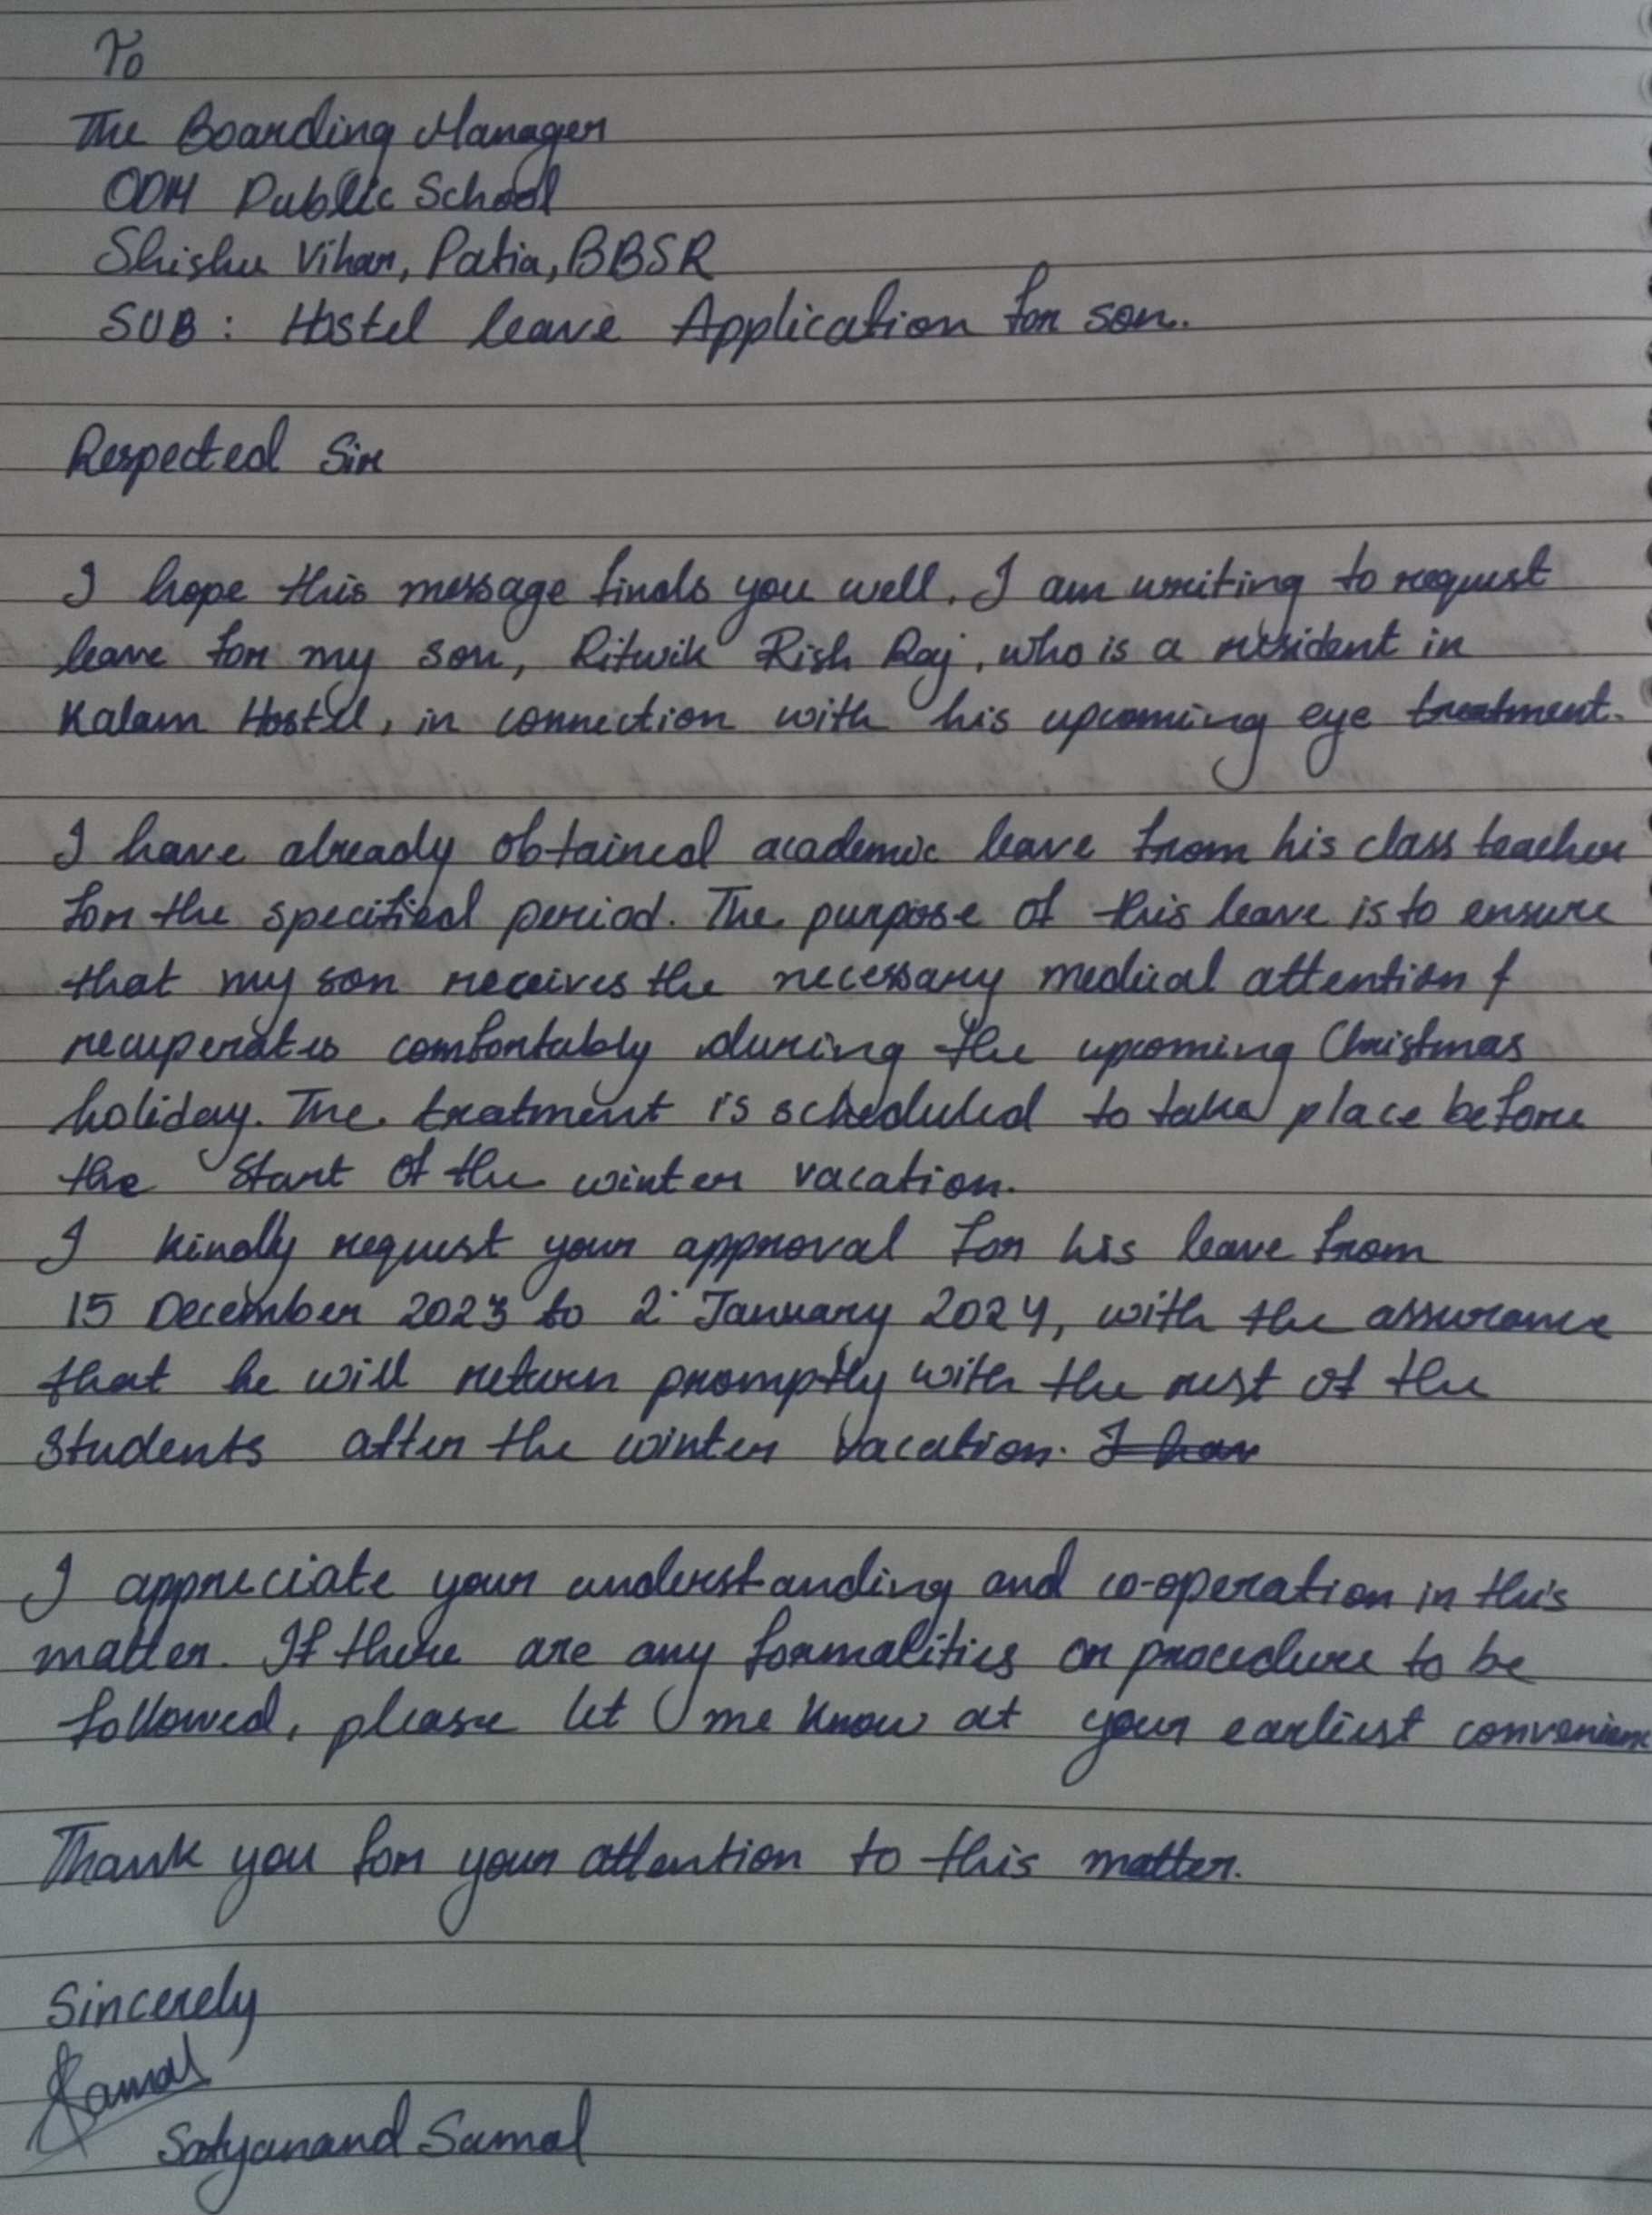 To
The Boarding Manager
ODM Public School
Shishu Vihar, Patia, BBSR
SUB : Hostel leave Application for son.
Respected Sir
I hope this message finds you well. I am writing to request
leave for my son, Ritwik Rish Raj, who is a resident in
Kalam Hostel, in connection with his upcoming eye treatment.
I have already obtained academic leave from his class teacher
for the specified period. The purpose of this leave is to ensure
that my son receives the necessary medical attention &
recuperates comfortably during the upcoming Christmas
holiday. The treatment is scheduled to take place before
the start of the winter vacation.
I kindly request your approval for his leave from
15 December 2023 to 2 January 2024, with the assurance
that he will return promptly with the rest of the
students after the winter vacation.
I appreciate your understanding and co-operation in this
matter. If there are any formalities or procedure to be
followed, please let me know at your earliest convenienc
Thank you for your attention to this matter.
Sincerely
Samal
Satyanand Samal